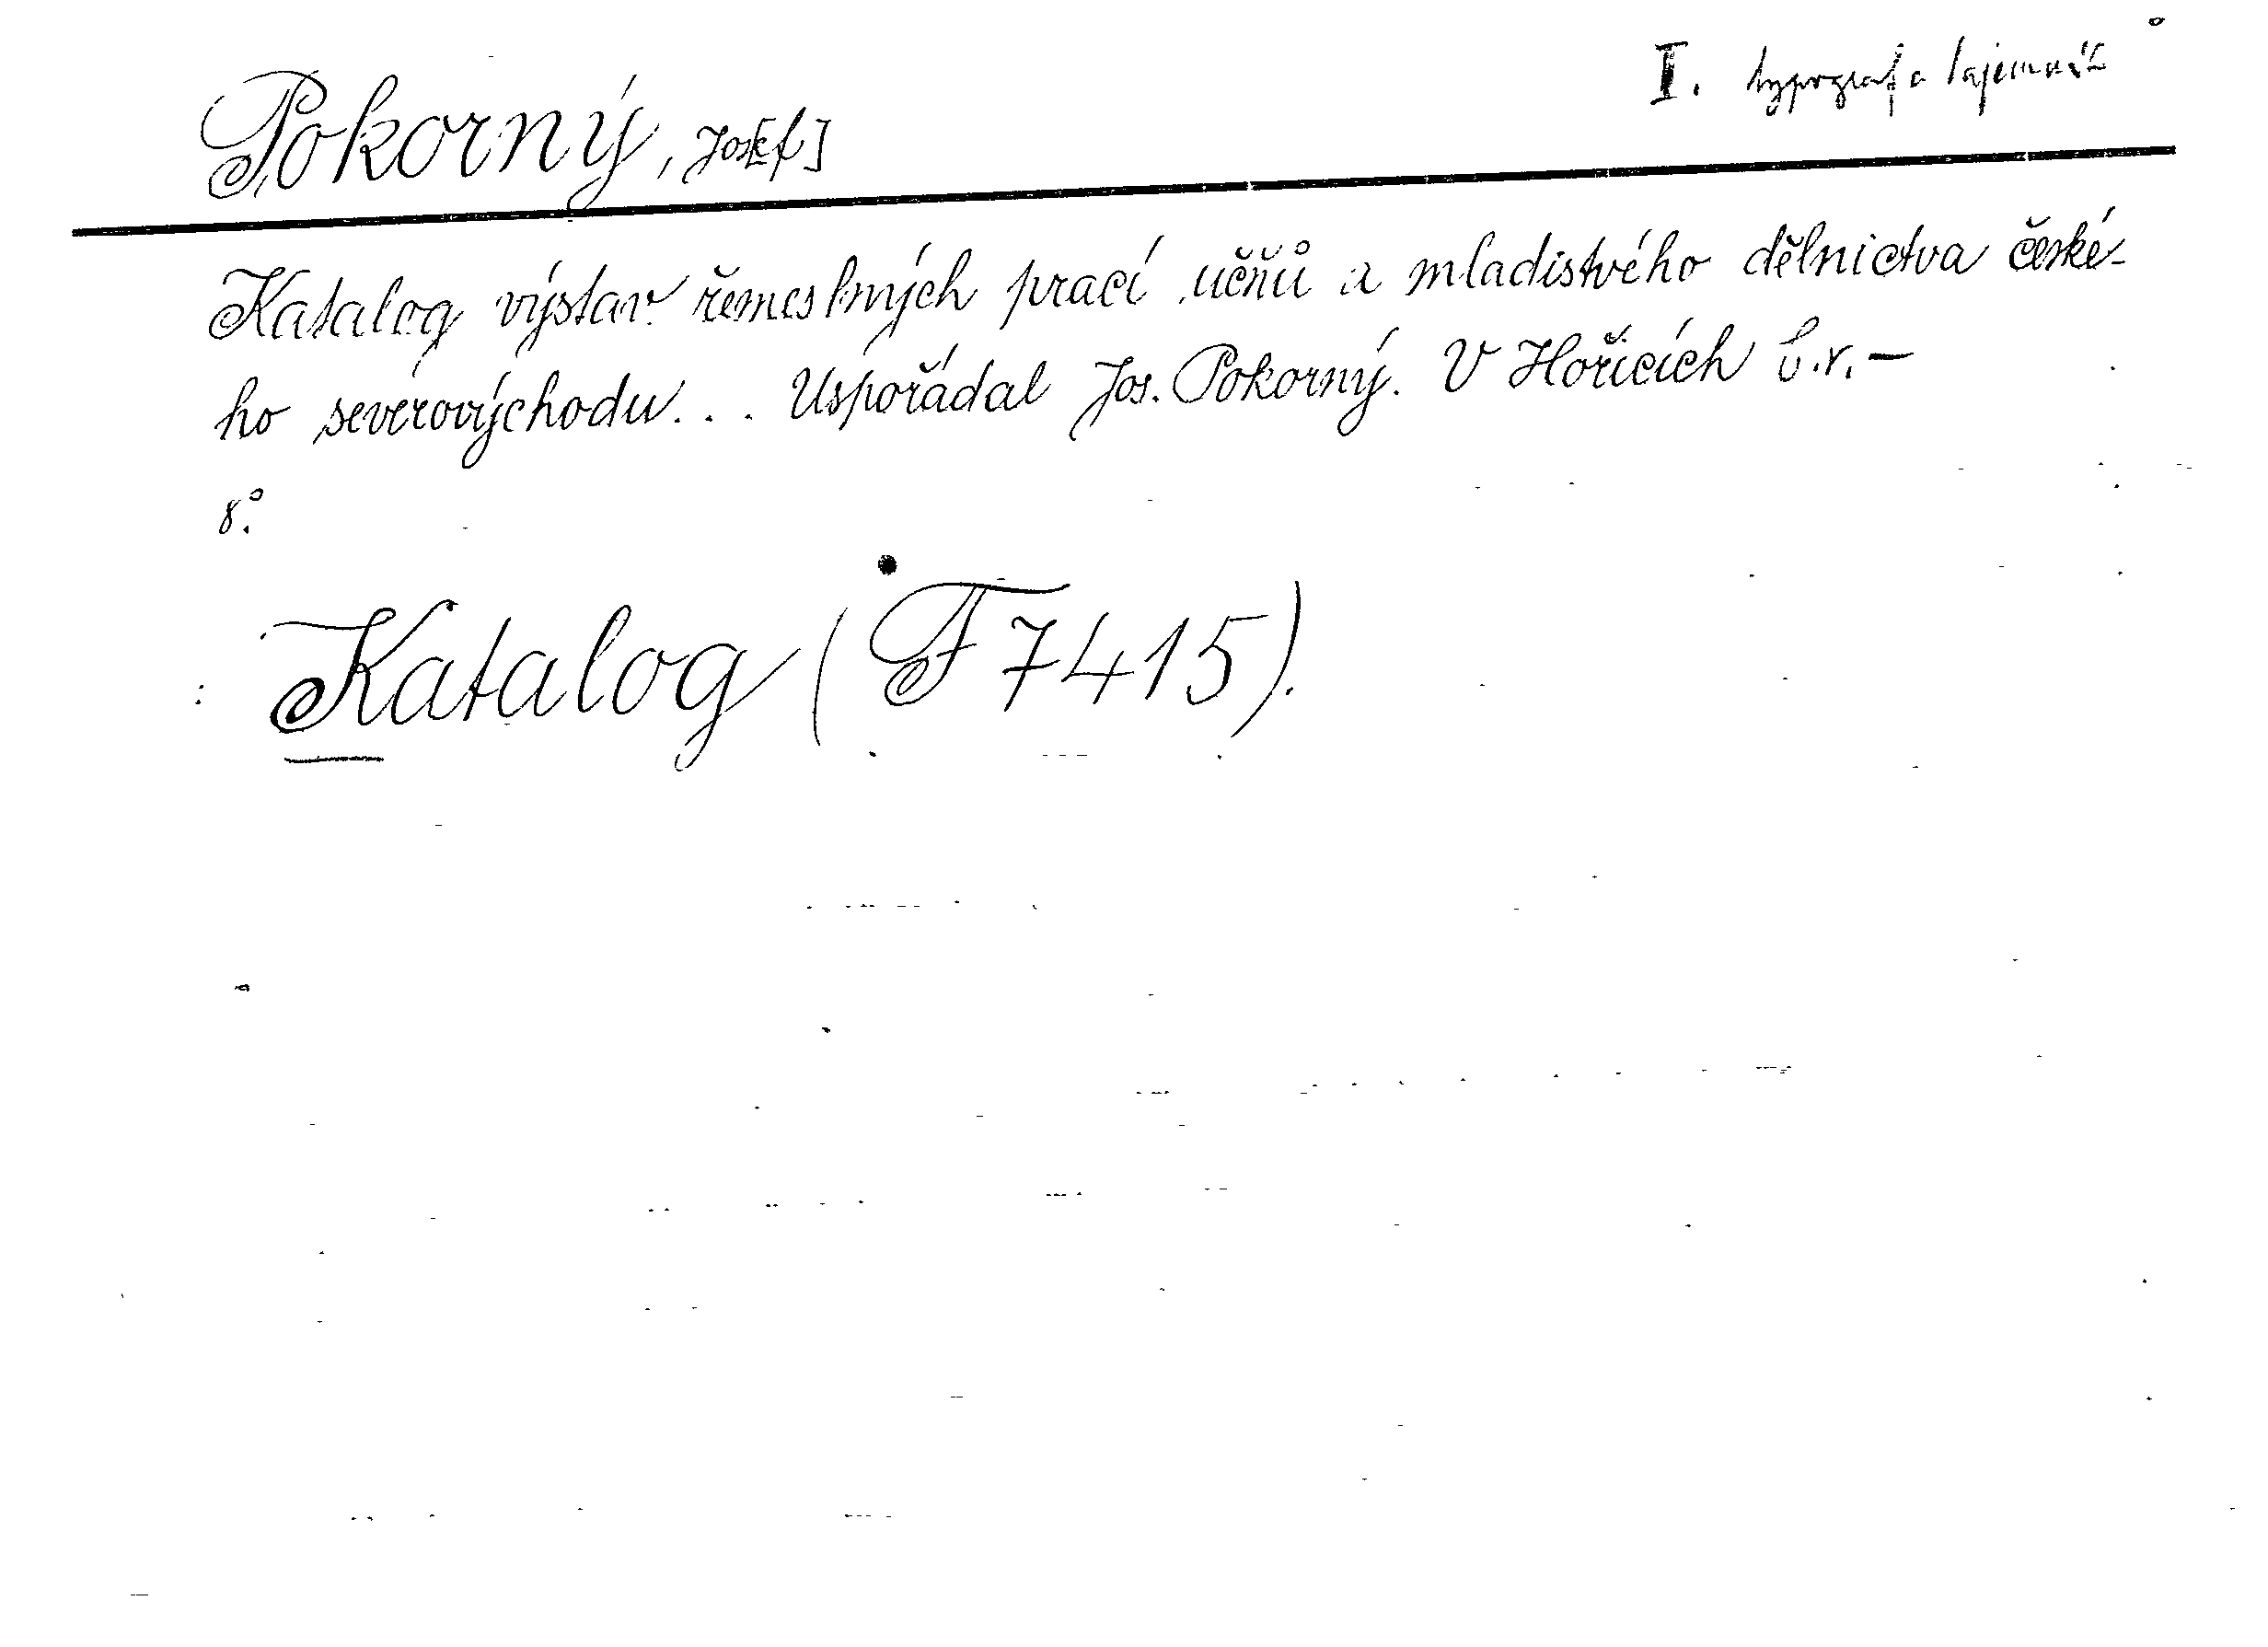 I. typograf a tajemník
Pokorný, Jos[ef]
Katalog výstav řemeslných prací učňů a mladistvého dělnictva české-
ho severovýchodu... Uspořádal Jos. Pokorný. V Hořicích b.r.—
8°.
Katalog (F 7415).